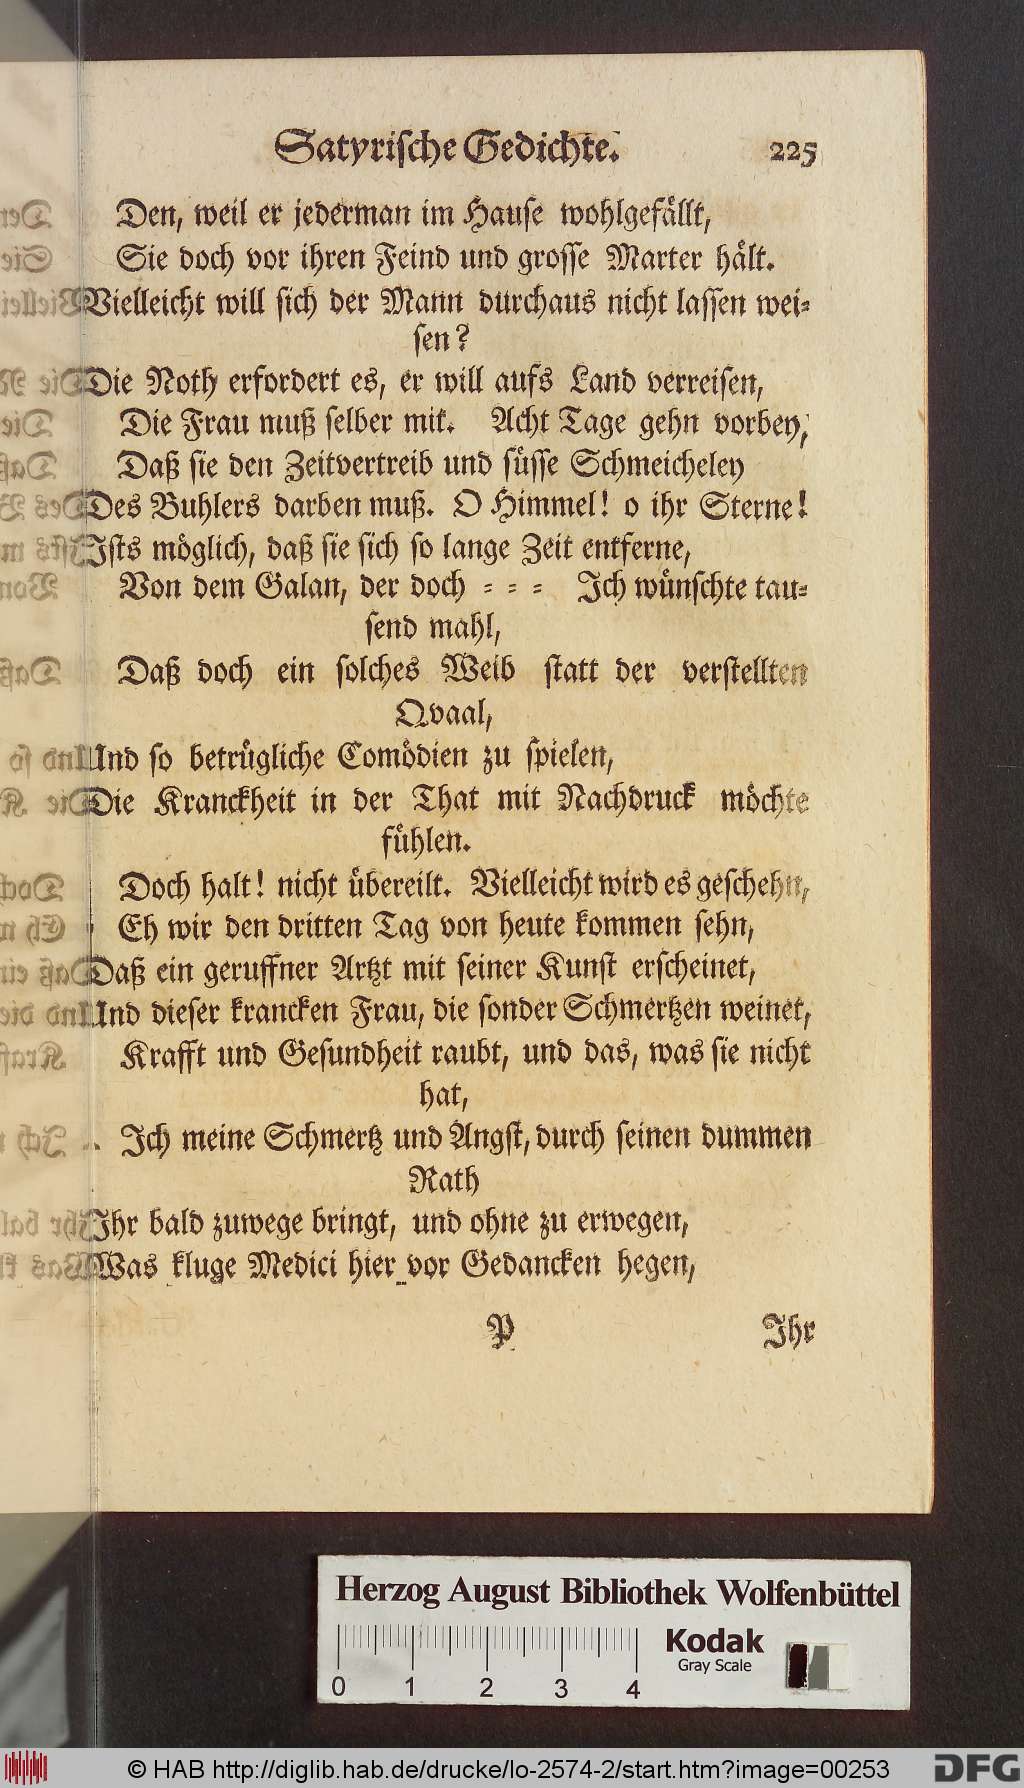 Satyrische Gedichte. 225
Den, weil er jederman im Hause wohlgefällt,
Sie doch vor ihren Feind und grosse Marter hält.
Vielleicht will sich der Mann durchaus nicht lassen wei⸗
sen?
Die Noth erfordert es, er will aufs Land verreisen,
Die Frau muß selber mit. Acht Tage gehn vorbey,
Daß sie den Zeitvertreib und süsse Schmeicheley
Des Buhlers darben muß. O Himmel! o ihr Sterne!
Ists möglich, daß sie sich so lange Zeit entferne,
Von dem Galan, der doch ⸗ ⸗ ⸗ Ich wünschte tau⸗
send mahl,
Daß doch ein solches Weib statt der verstellten
Qvaal,
Und so betrügliche Comödien zu spielen,
Die Kranckheit in der That mit Nachdruck möchte
fühlen.
Doch halt! nicht übereilt. Vielleicht wird es geschehn,
Eh wir den dritten Tag von heute kommen sehn,
Daß ein geruffner Artzt mit seiner Kunst erscheinet,
Und dieser krancken Frau, die sonder Schmertzen weinet,
Krafft und Gesundheit raubt, und das, was sie nicht
hat,
Ich meine Schmertz und Angst, durch seinen dummen
Rath
Ihr bald zuwege bringt, und ohne zu erwegen,
Was kluge Medici hier vor Gedancken hegen,
P Ihr
Herzog August Bibliothek Wolfenbüttel
Kodak
Gray Scale
0 1 2 3 4
© HAB http://diglib.hab.de/drucke/lo-2574-2/start.htm?image=00253
DFG